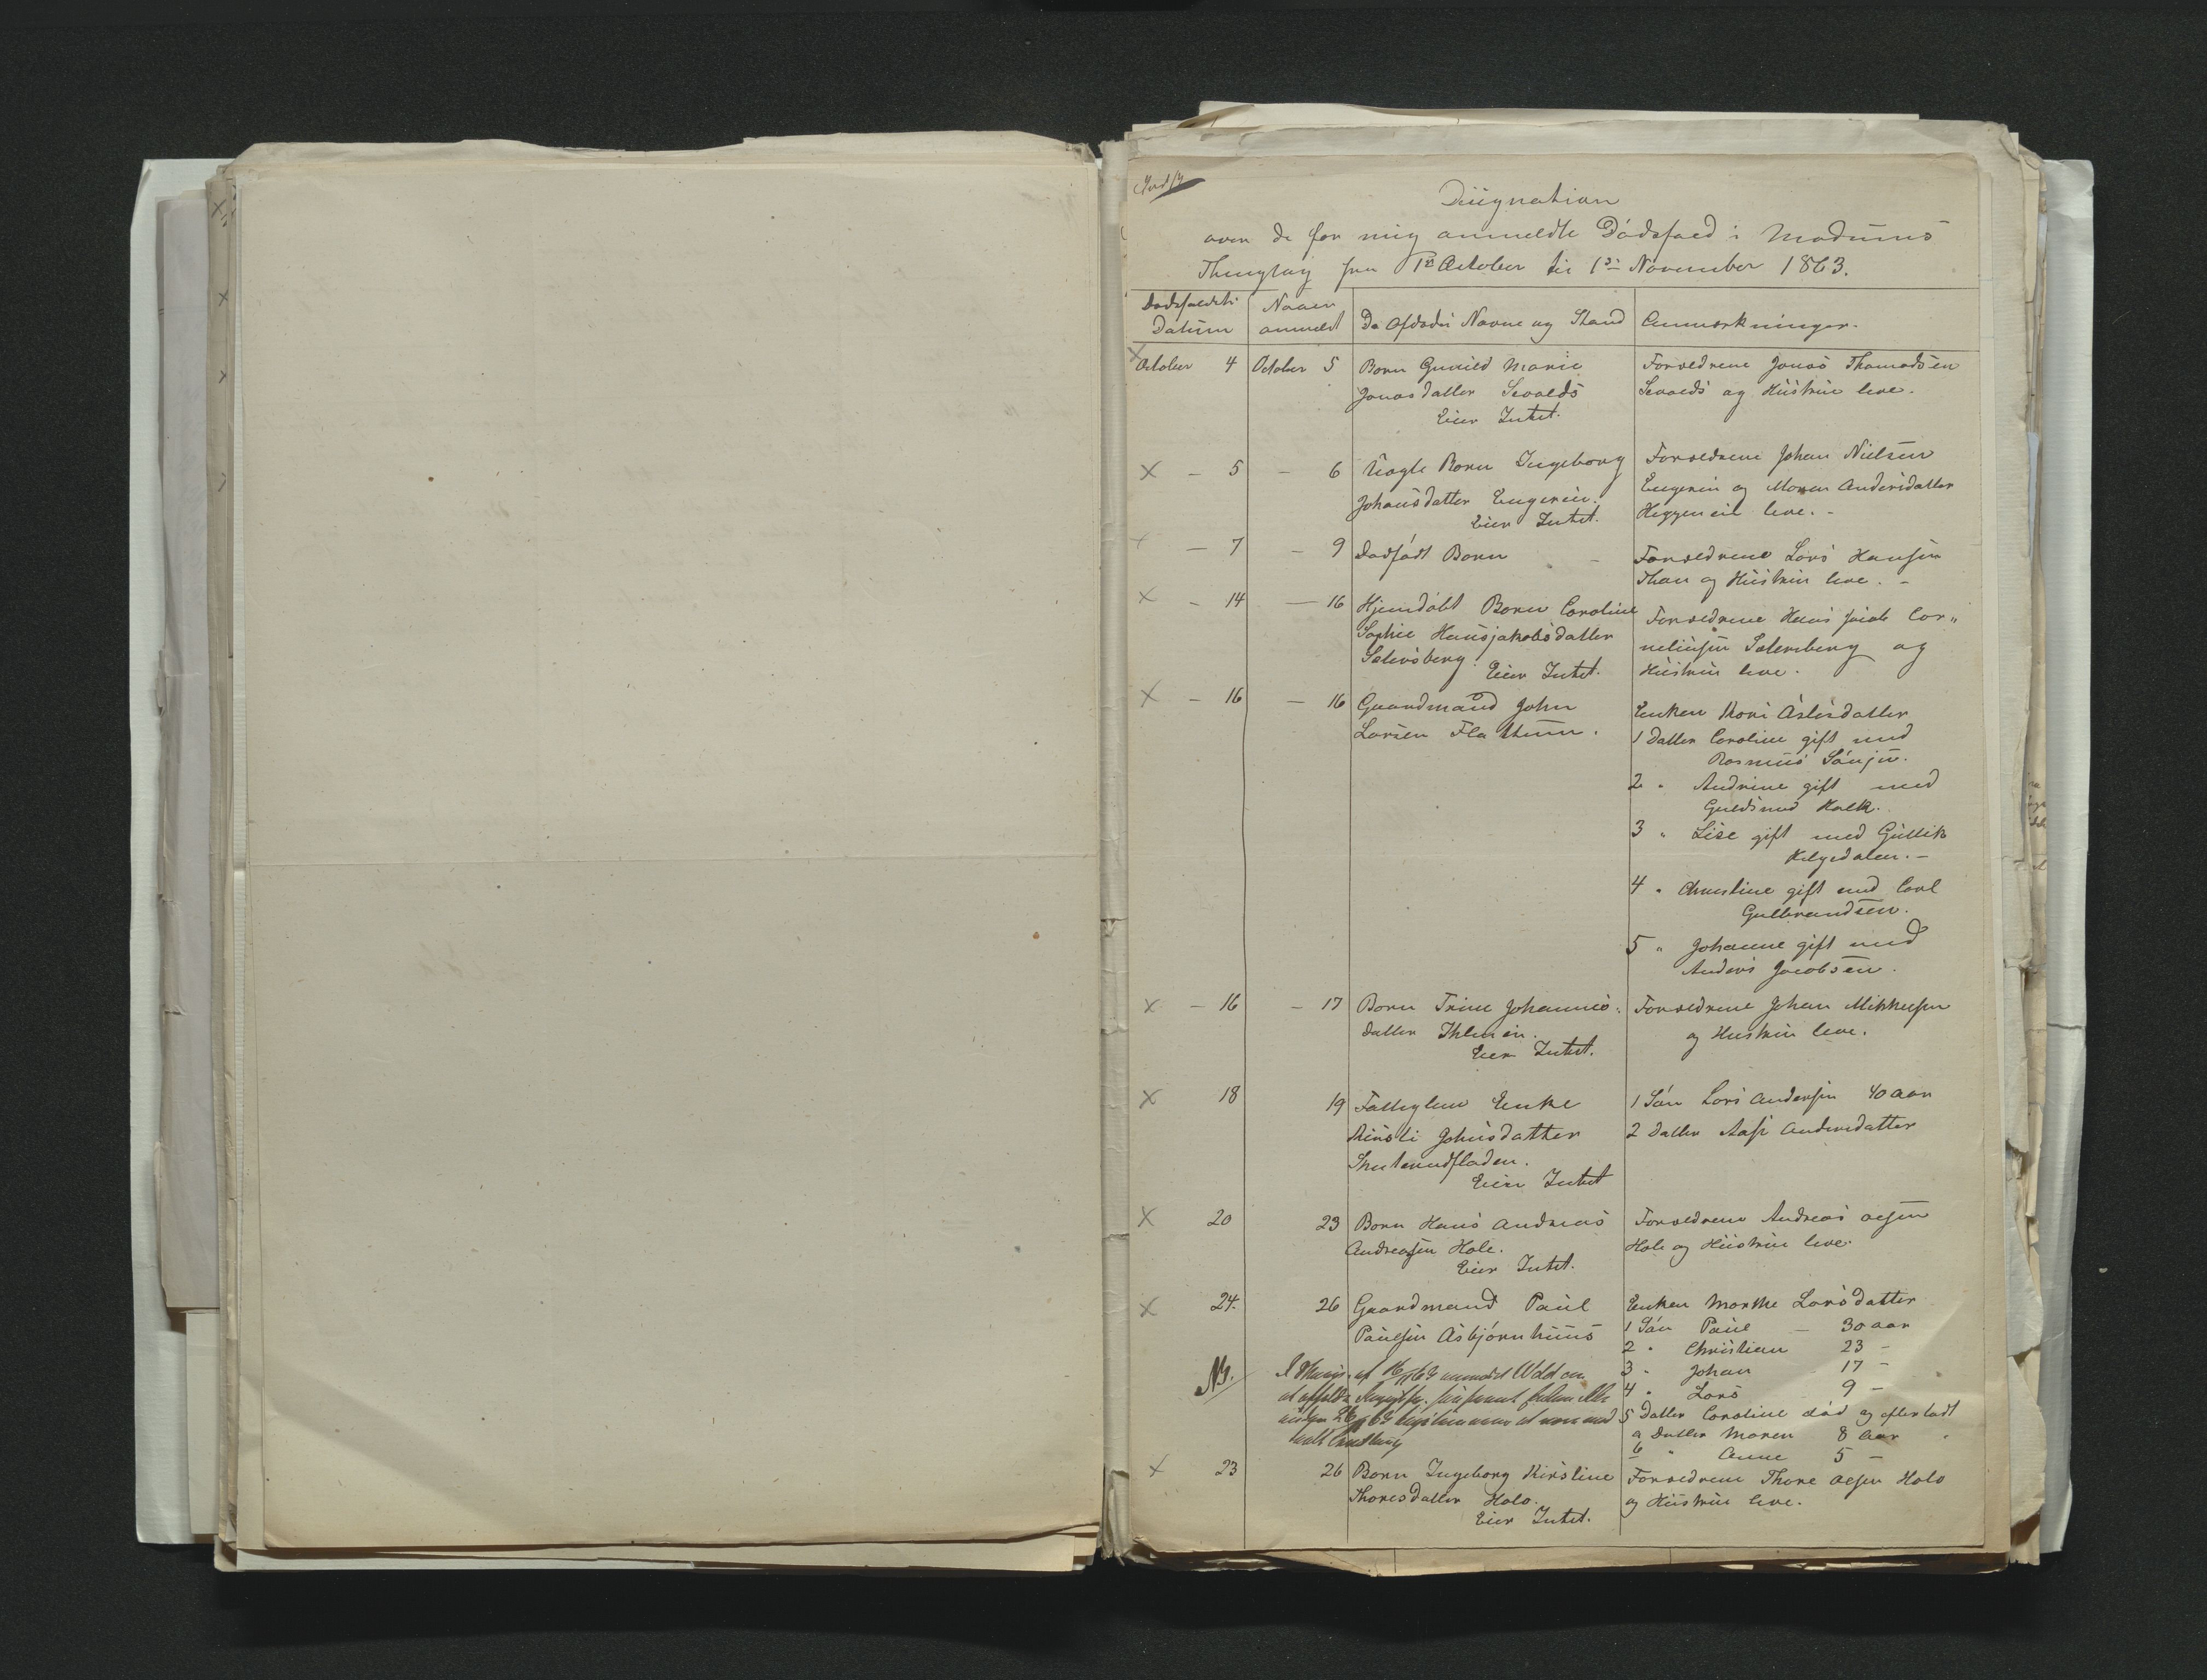 Designation
over de for mig anmeldte Dødsfald i Modums
Thinglag fra 1ste October til 1ste November 1863.
Dødsfaldets Datum
Naar anmeldt
De Afdødes Navne og Stand
Anmærkninger.
October 4 October 5 Barn Gunild Marie
Jonasdatter Sevalds
Eier Intet.
Forældrene Jonas Thomassen
Sevalds og Hustrue leve.
— 5 — 6 Uægte Barn Ingeborg
Johansdatter Engerein.
Eier Intet.
Forældrene Johan Nielsen
Engerein og Maren Andersdatter
Heggeneie leve. -
— 7 — 9 Dødfødt Barn -
Forældrene Lars Hansen
Thon og Hustrue leve. -
- 14 — 16 Hjemdøbt Barn Caroline
Sophie Hansjakobsdatter
Solersberg. Eier Intet.
Forældrene Hans Jacob Cor„
neliusen Solersberg og
Hustrue leve.
- 16 — 16 Gaardmand John
Larsen Flattum.
Enken Kari Aslesdatter
1 Datter Caroline gift med
Rasmus
2 " Andrine gift med
Guldsmed Kalk.
3 " Lise gift med Gullik
Helgedalen. -
4 " Christine gift med Carl
Gulbrandsen.
5 " Johanne gift med
Anders Jacobsen.
- 16 — 17 Barn Trine Johannes-
datter Ihleneie.
Eier Intet.
Forældrene Johan Mikkelsen
og Hustrue leve.
18 19 Fattiglem Enke
Kirsti Johnsdatter
Skuterudfladen.
Eier Intet
1 Søn Lars Andersen 40 Aar
2 Datter Aase Andersdatter
20 23 Barn Hans Andreas
Andreasen Hole.
Eier Intet.
Forældrene Andreas Olsen
Hole og Hustrue leve.
24. 26 Gaardmand Paul
Paulsen Asbjørnhuus
Enken Marthe Larsdatter
1 Søn Paul — 30 Aar
2 " Christian 23 -
3 " Johan 17 -
4 " Lars 9 -
5 Datter Caroline død og efterladt
a Datter Maren 8 Aar
b " Anne 5 —
NB.
23 26 Barn Ingeborg Kirstine
Thoresdatter Holo.
Eier Intet.
Forældrene Thore Olsen Holo
og Hustrue leve.